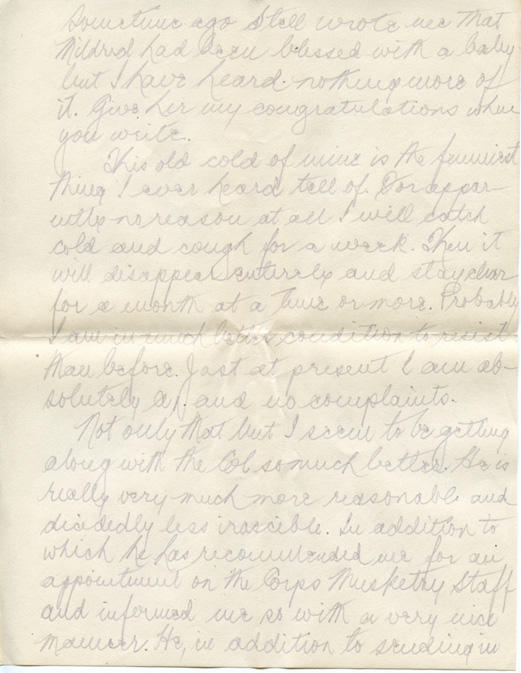 Sometime ago Stell wrote me that
Mildred had been blessed with a baby
but I have heard nothing more of
it. Give her my congratulations when
you write.
This old cold of mine is the funniest
thing I ever heard tell of. For appar-
ently no reason at all I will catch
cold and cough for a week. Then it
will disappear entirely and stay clear
for a month at a time or more. Probably
I am in much better condition to resist
than before. Just at present I am ab-
solutely A1. and no complaints.
Not only that but I seem to be getting
along with the Col so much better. He is
really very much more reasonable and
dicidedly less irascible. In addition to
which he has recommended me for an
appointment on the Corps Musketry Staff
and informed me so with a very nice
manner. He, in addition to sending in